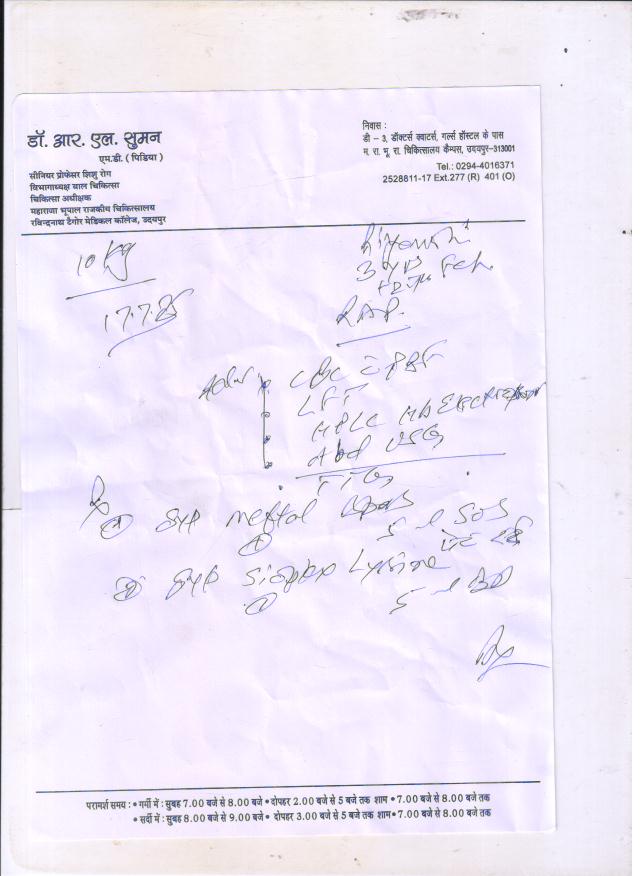 डॉ. आर. एल. सुमन
एम.डी. ( पिडिया )
सीनियर प्रोफेसर शिशु रोग
विभागाध्यक्ष बाल चिकित्सा
चिकित्सा अधीक्षक
महाराजा भूपाल राजकीय चिकित्सालय
रविन्द्रनाथ टैगोर मेडिकल कॉलेज, उदयपुर
निवास :
डी – 3, डॉक्टर्स क्वाटर्स, गर्ल्स हॉस्टल के पास
म. रा. भू. रा. चिकित्सालय कैम्पस, उदयपुर–313001
Tel.: 0294-4016371
2528811-17 Ext.277 (R) 401 (O)
10 kg
3 yrs
RAP.
CBC
LFT
HPLC Hb
Abd USG
TTG
① syp Meftal spas
5 ml SOS
② syp Lysine
5 ml BD
परामर्श समय : • गर्मी में : सुबह 7.00 बजे से 8.00 बजे • दोपहर 2.00 बजे से 5 बजे तक शाम • 7.00 बजे से 8.00 बजे तक
• सर्दी में : सुबह 8.00 बजे से 9.00 बजे • दोपहर 3.00 बजे से 5 बजे तक शाम • 7.00 बजे से 8.00 बजे तक